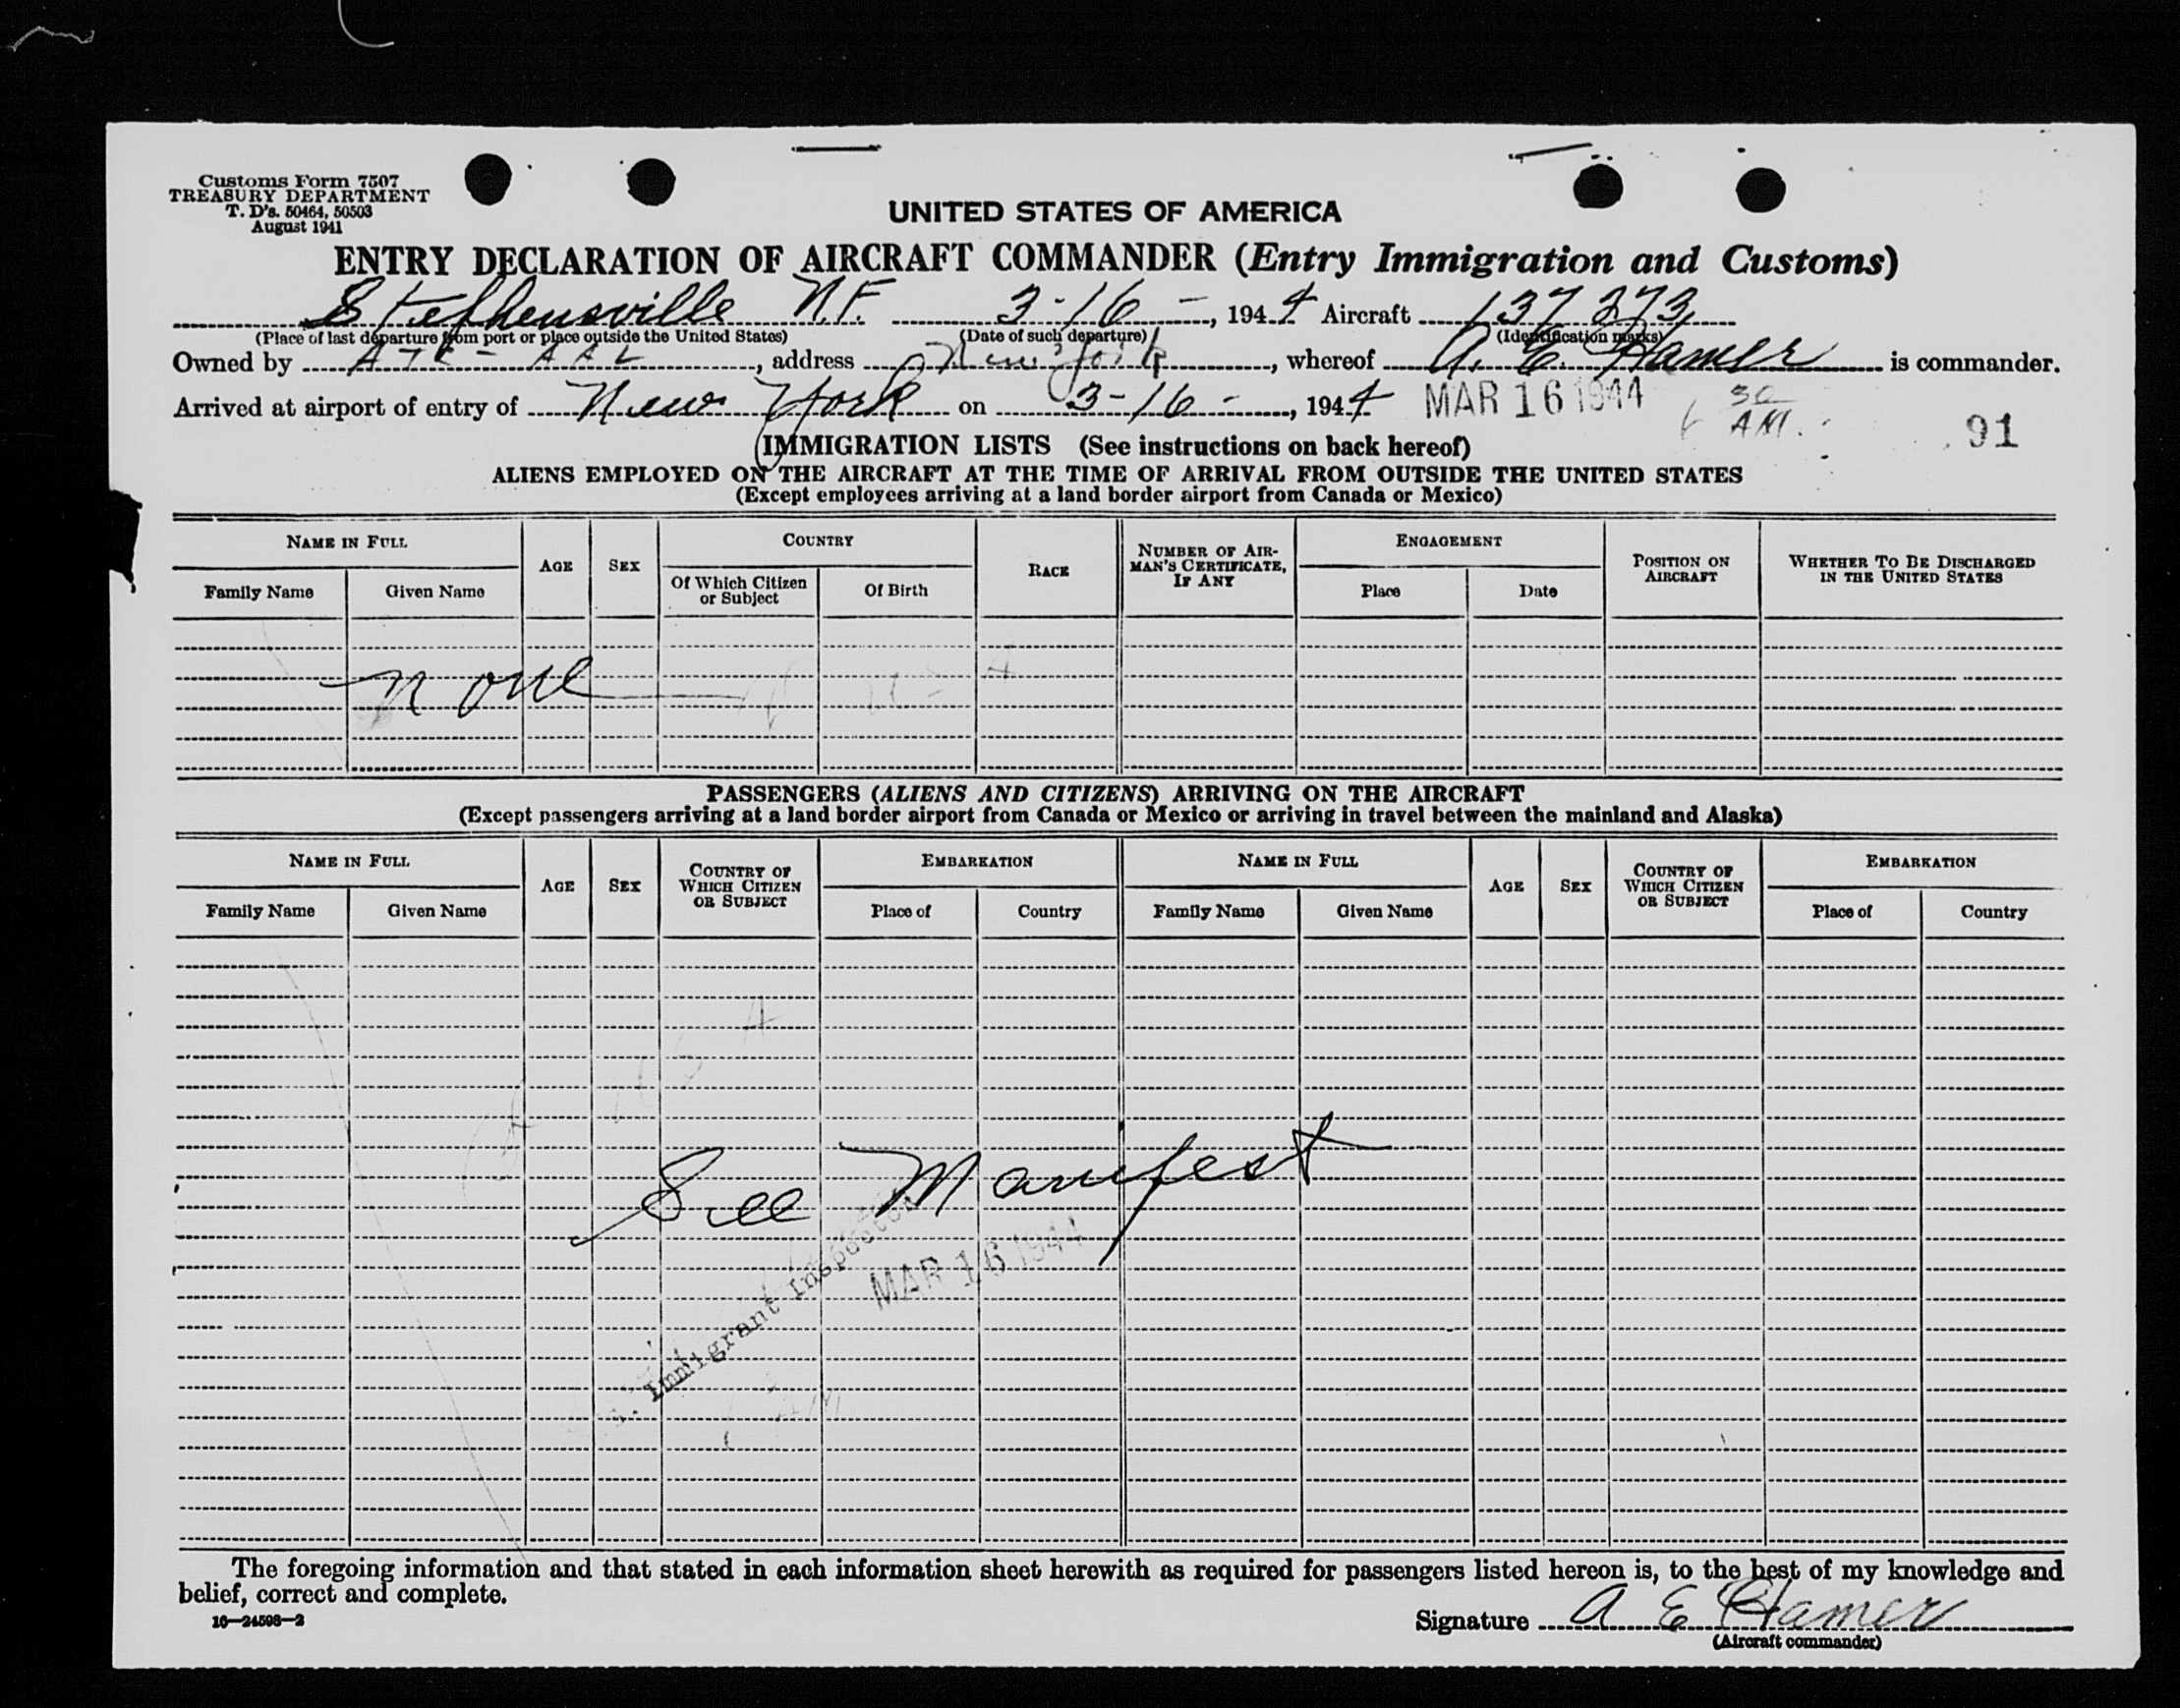 Customs Form 7507
TREASURY DEPARTMENT
T. D's. 50464, 50503
August 1941
UNITED STATES OF AMERICA
ENTRY DECLARATION OF AIRCRAFT COMMANDER (Entry Immigration and Customs)
Stephensville N.F. 3-16-, 1944 Aircraft 137273
(Place of last departure from port or place outside the United States) (Date of such departure) (Identification marks)
Owned by ATC - AAL, address New York, whereof A. E. Hamer is commander.
Arrived at airport of entry of New York on 3-16-, 1944 MAR 16 1944 30 AM. 91
IMMIGRATION LISTS (See instructions on back hereof)
ALIENS EMPLOYED ON THE AIRCRAFT AT THE TIME OF ARRIVAL FROM OUTSIDE THE UNITED STATES
(Except employees arriving at a land border airport from Canada or Mexico)
NAME IN FULL AGE SEX COUNTRY RACE NUMBER OF AIRMAN'S CERTIFICATE, IF ANY ENGAGEMENT POSITION ON AIRCRAFT WHETHER TO BE DISCHARGED IN THE UNITED STATES
Family Name Given Name Of Which Citizen or Subject Of Birth Place Date
None
PASSENGERS (ALIENS AND CITIZENS) ARRIVING ON THE AIRCRAFT
(Except passengers arriving at a land border airport from Canada or Mexico or arriving in travel between the mainland and Alaska)
NAME IN FULL AGE SEX COUNTRY OF WHICH CITIZEN OR SUBJECT EMBARKATION NAME IN FULL AGE SEX COUNTRY OF WHICH CITIZEN OR SUBJECT EMBARKATION
Family Name Given Name Place of Country Family Name Given Name Place of Country
See Manifest
Immigrant Inspector
MAR 16 1944
The foregoing information and that stated in each information sheet herewith as required for passengers listed hereon is, to the best of my knowledge and
belief, correct and complete.
16—24598-2
Signature A E Hamer
(Aircraft commander)